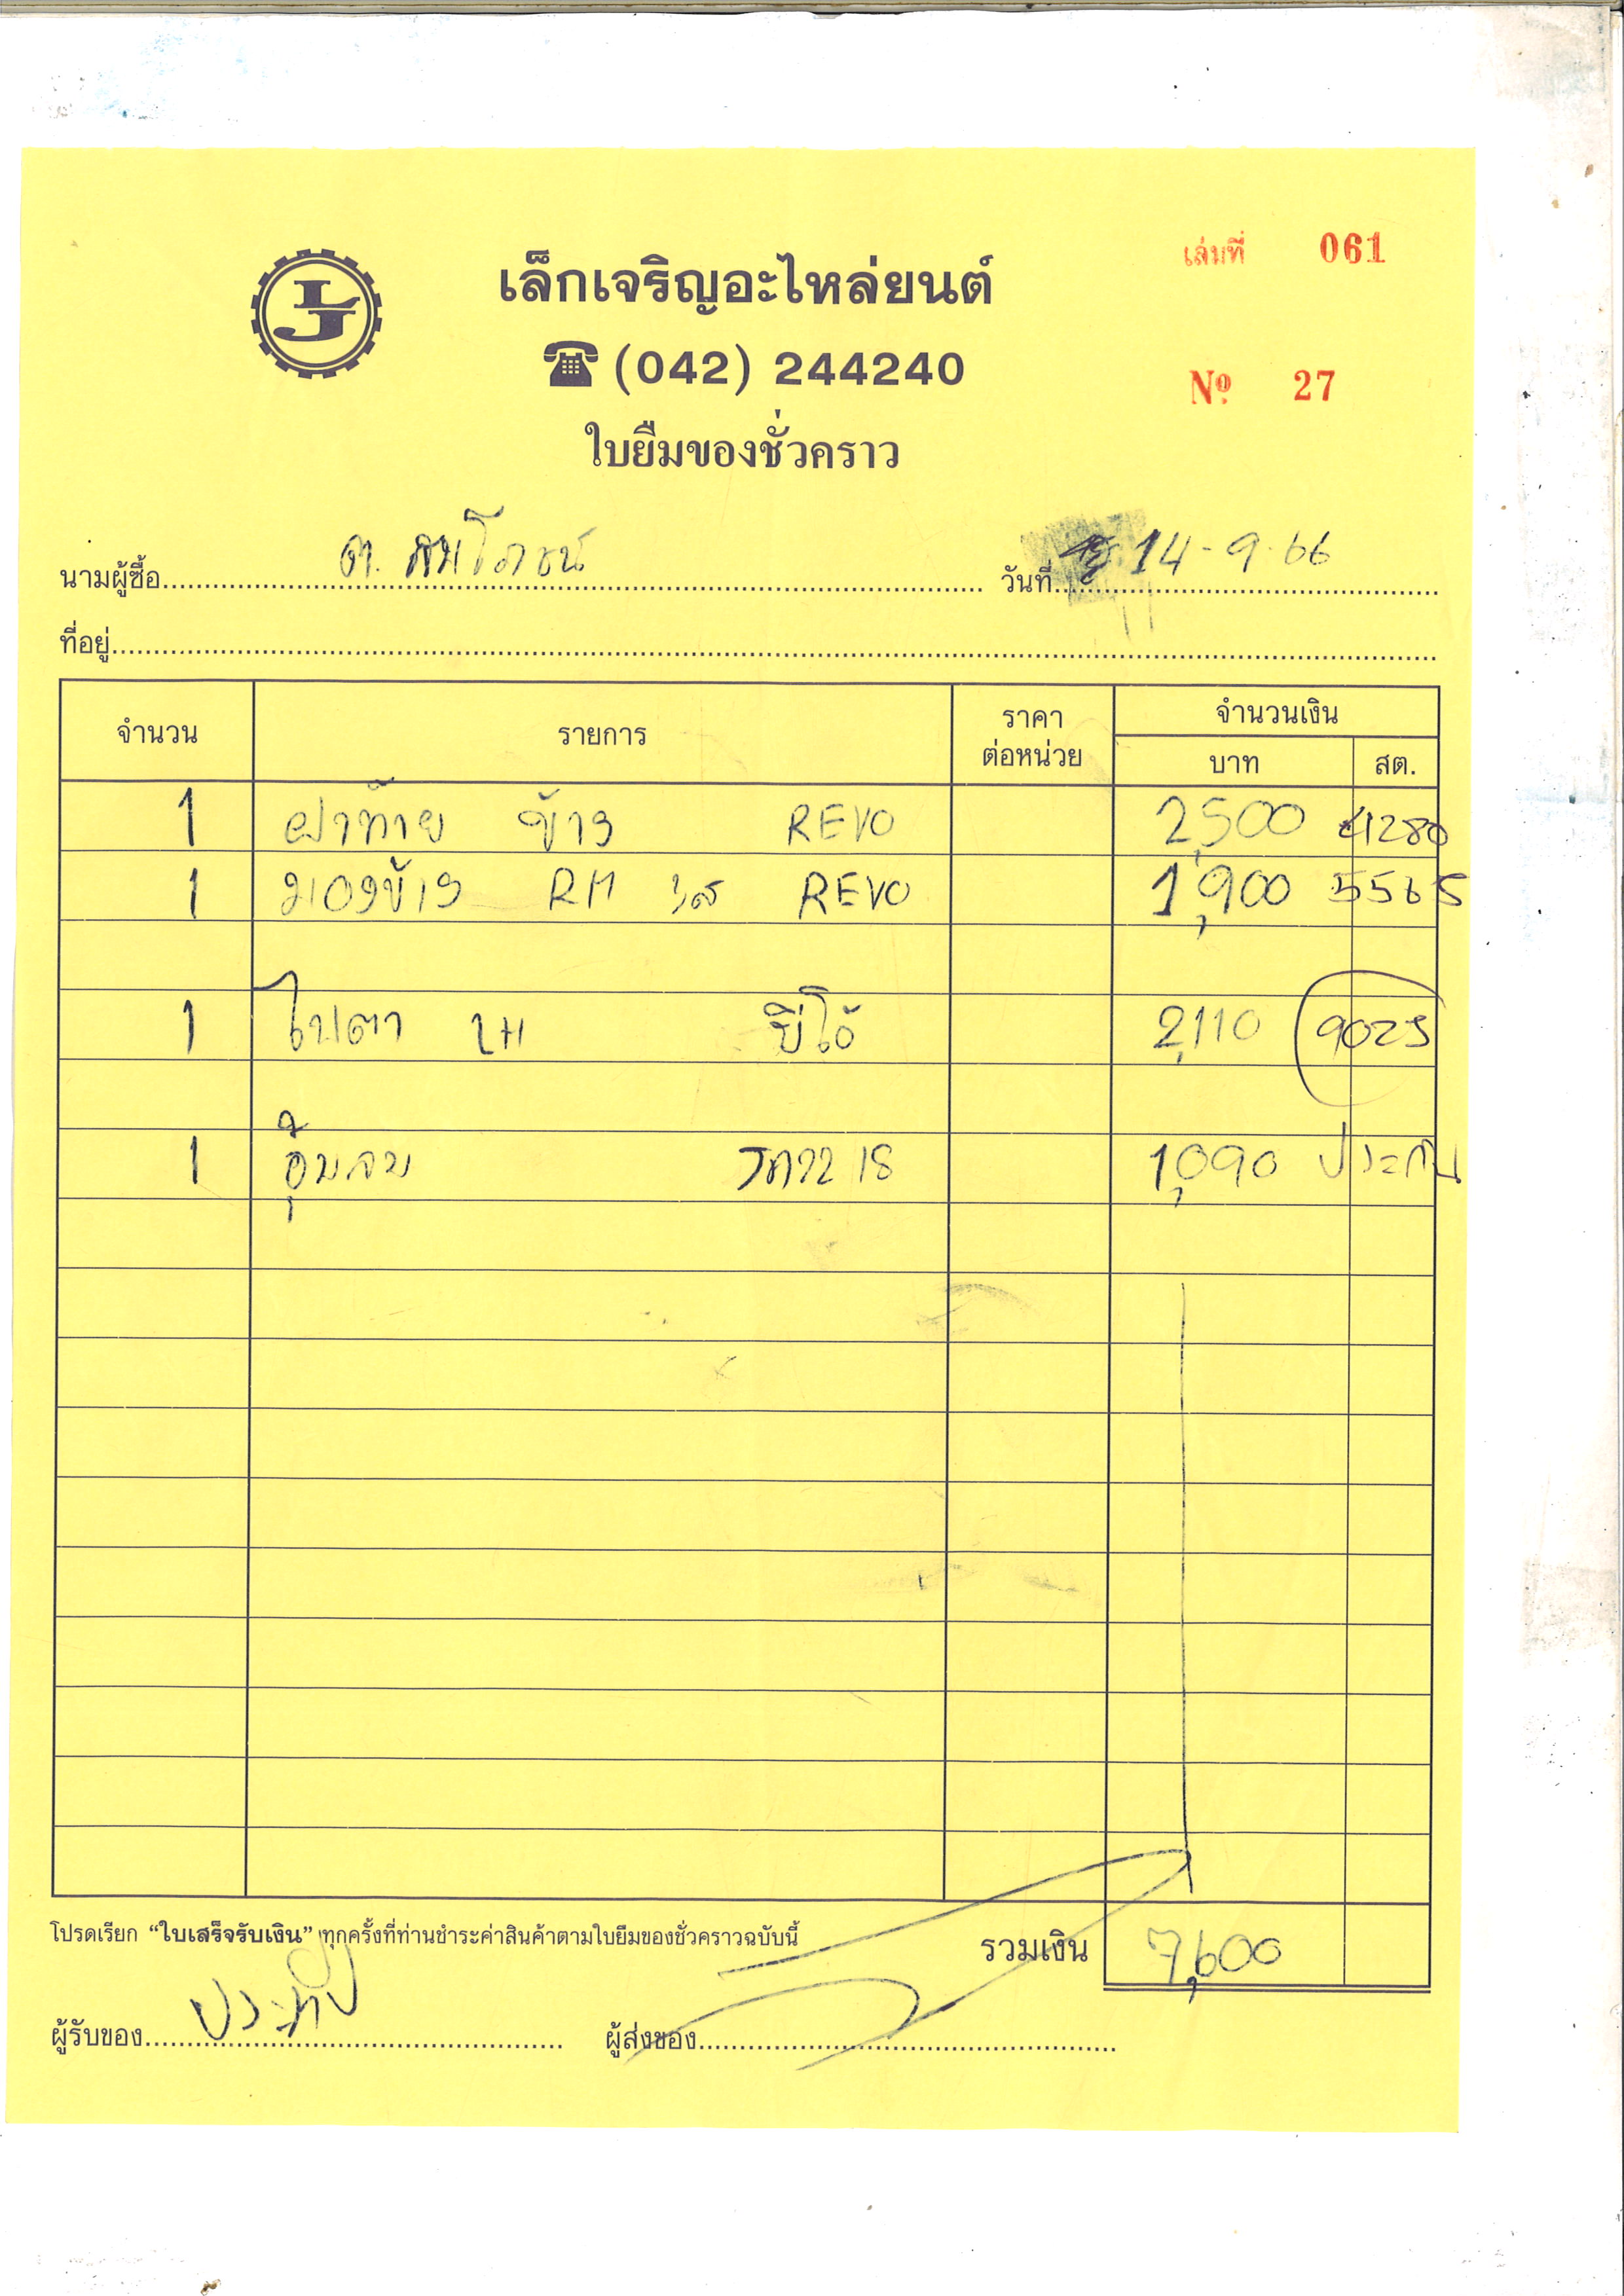 เล่มที่ 061
เล็กเจริญอะไหล่ยนต์
(042) 244240
Nº 27
ใบยืมของชั่วคราว
นามผู้ซื้อ ต. สมโภชน์ วันที่ 14-9-66
ที่อยู่
จำนวน รายการ ราคาต่อหน่วย จำนวนเงิน
บาท สต.
1 ฝาท้าย ซ้าย REVO 2,500 41280
1 REVO 1,900 5565
1 ไฟตา วีโก้ 2,110 9025
1 1,090 ประกัน
โปรดเรียก “ใบเสร็จรับเงิน” ทุกครั้งที่ท่านชำระค่าสินค้าตามใบยืมของชั่วคราวฉบับนี้ รวมเงิน 7,600
ผู้รับของ ประทีป ผู้ส่งของ